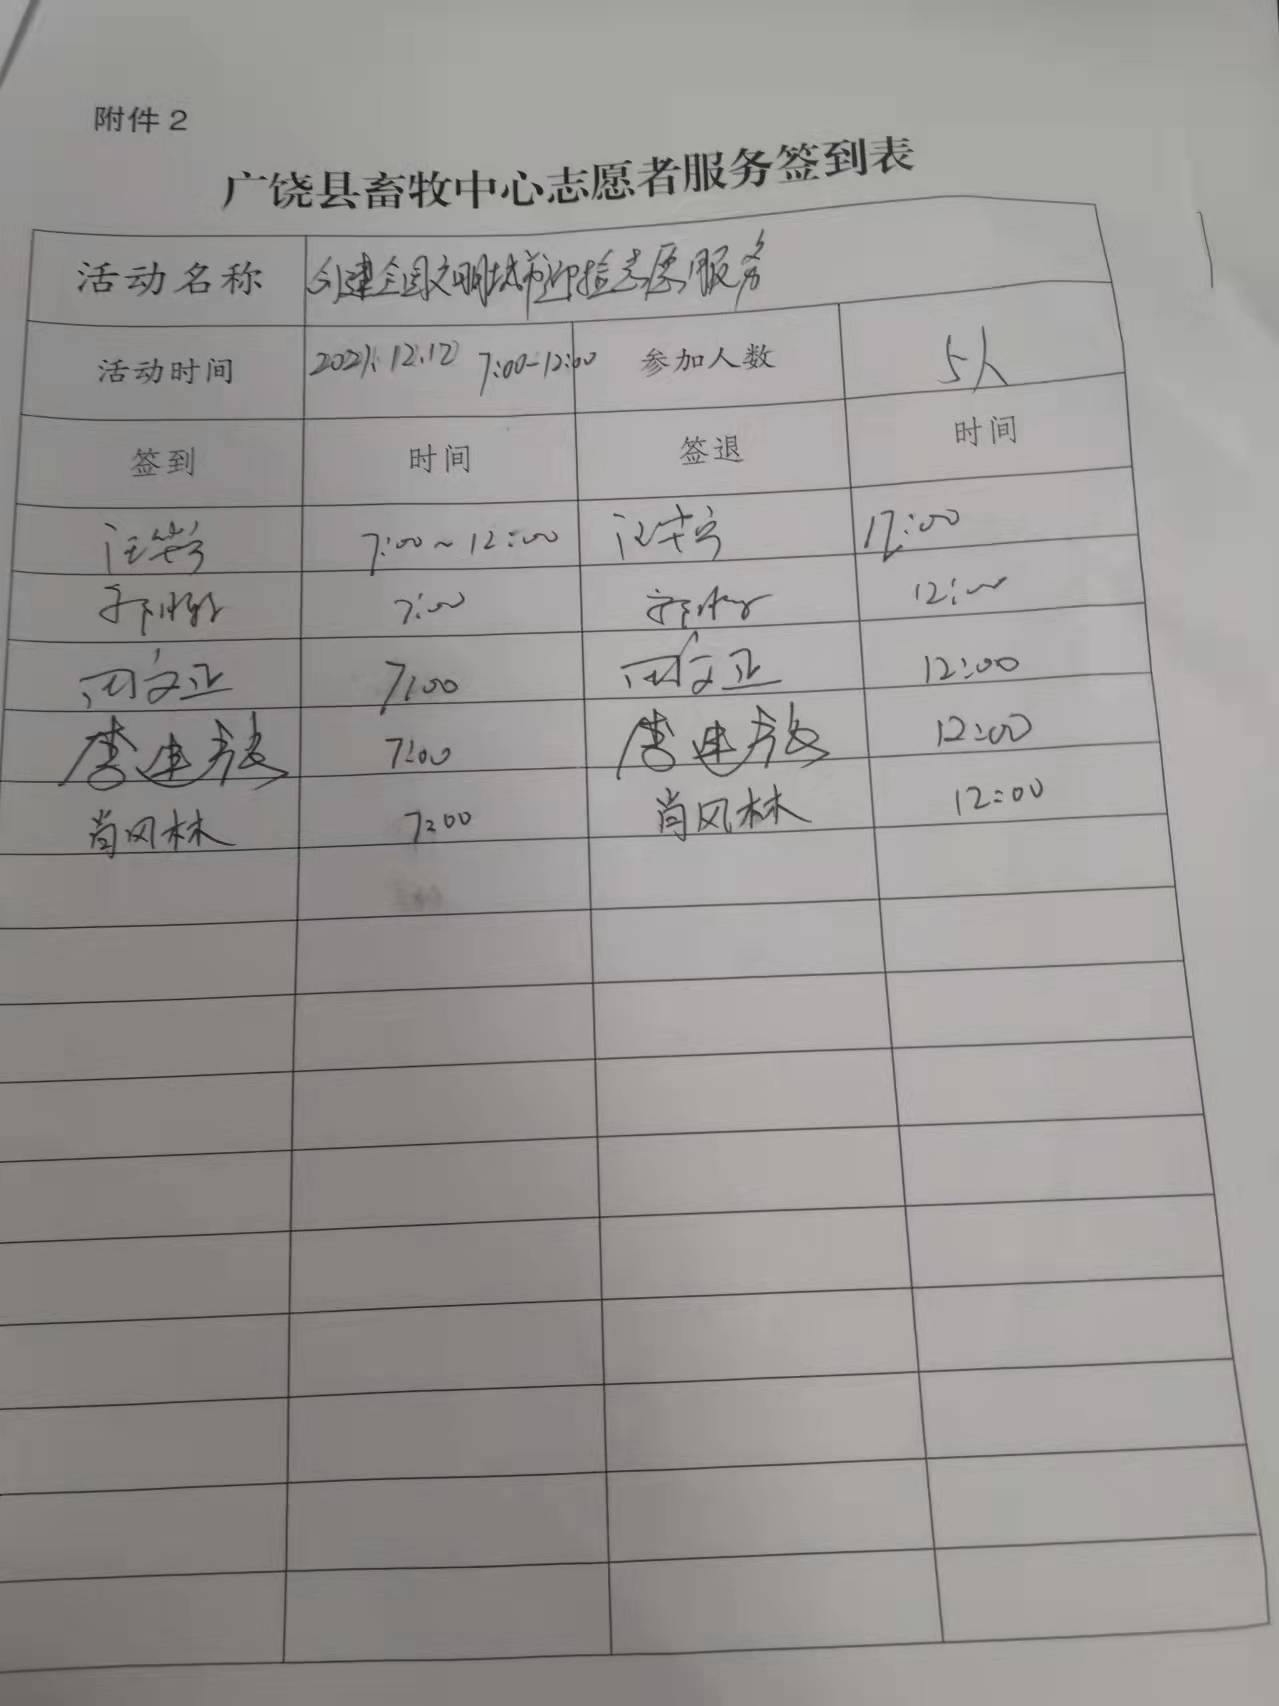 附件2
广饶县畜牧中心志愿者服务签到表
活动名称 创建全国文明城市迎检志愿服务
活动时间 2021.12.12 7:00-12:00 参加人数 5人
签到 时间 签退 时间
7:00~12:00 12:00
7:00 12:00
周文正 7:00 周文正 12:00
李建 7:00 李建 12:00
尚风林 7:00 尚风林 12:00